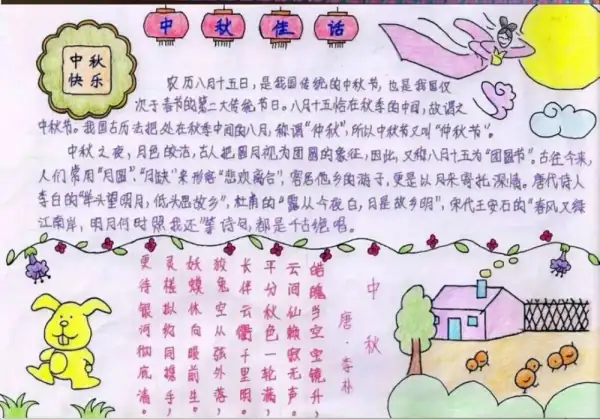 中秋佳话
中秋
快乐
农历八月十五日，是我国传统的中秋节，也是我国仅
次于春节的第二大传统节日。八月十五恰在秋季的中间，故谓之
中秋节。我国古历法把处在秋季中间的八月，称谓“仲秋”，所以中秋节又叫“仲秋节”。
中秋之夜，月色皎洁，古人把圆月视为团圆的象征，因此，又称八月十五为“团圆节”。古往今来，
人们常用“月圆”、“月缺”来形容“悲欢离合”，客居他乡的游子，更是以月来寄托深情。唐代诗人
李白的“举头望明月，低头思故乡”，杜甫的“露从今夜白，月是故乡明”，宋代王安石的“春风又绿
江南岸，明月何时照我还”等诗句，都是千古绝唱。
中秋
唐·李朴
皓魄当空宝镜升，
云间仙籁寂无声。
平分秋色一轮满，
长伴云衢千里明。
狡兔空从弦外落，
妖蟆休向眼前生。
灵槎拟约同携手，
更待银河彻底清。